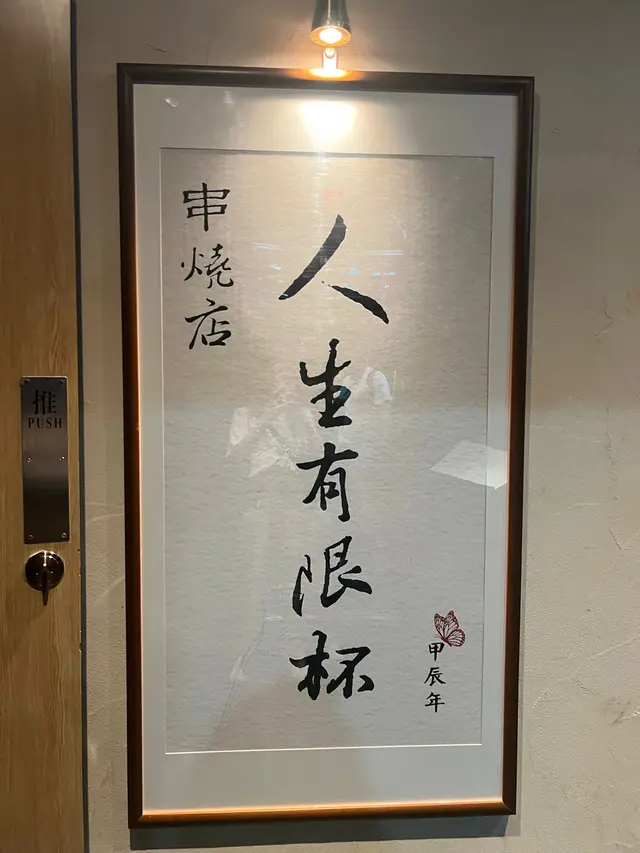 人生有限杯
串燒店
甲辰年
推
PUSH